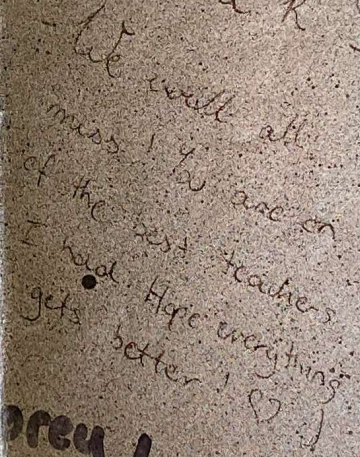 - We will all
miss! You are on
of the best teachers
I had. Hope everything
gets better! ♡ :)
orey!